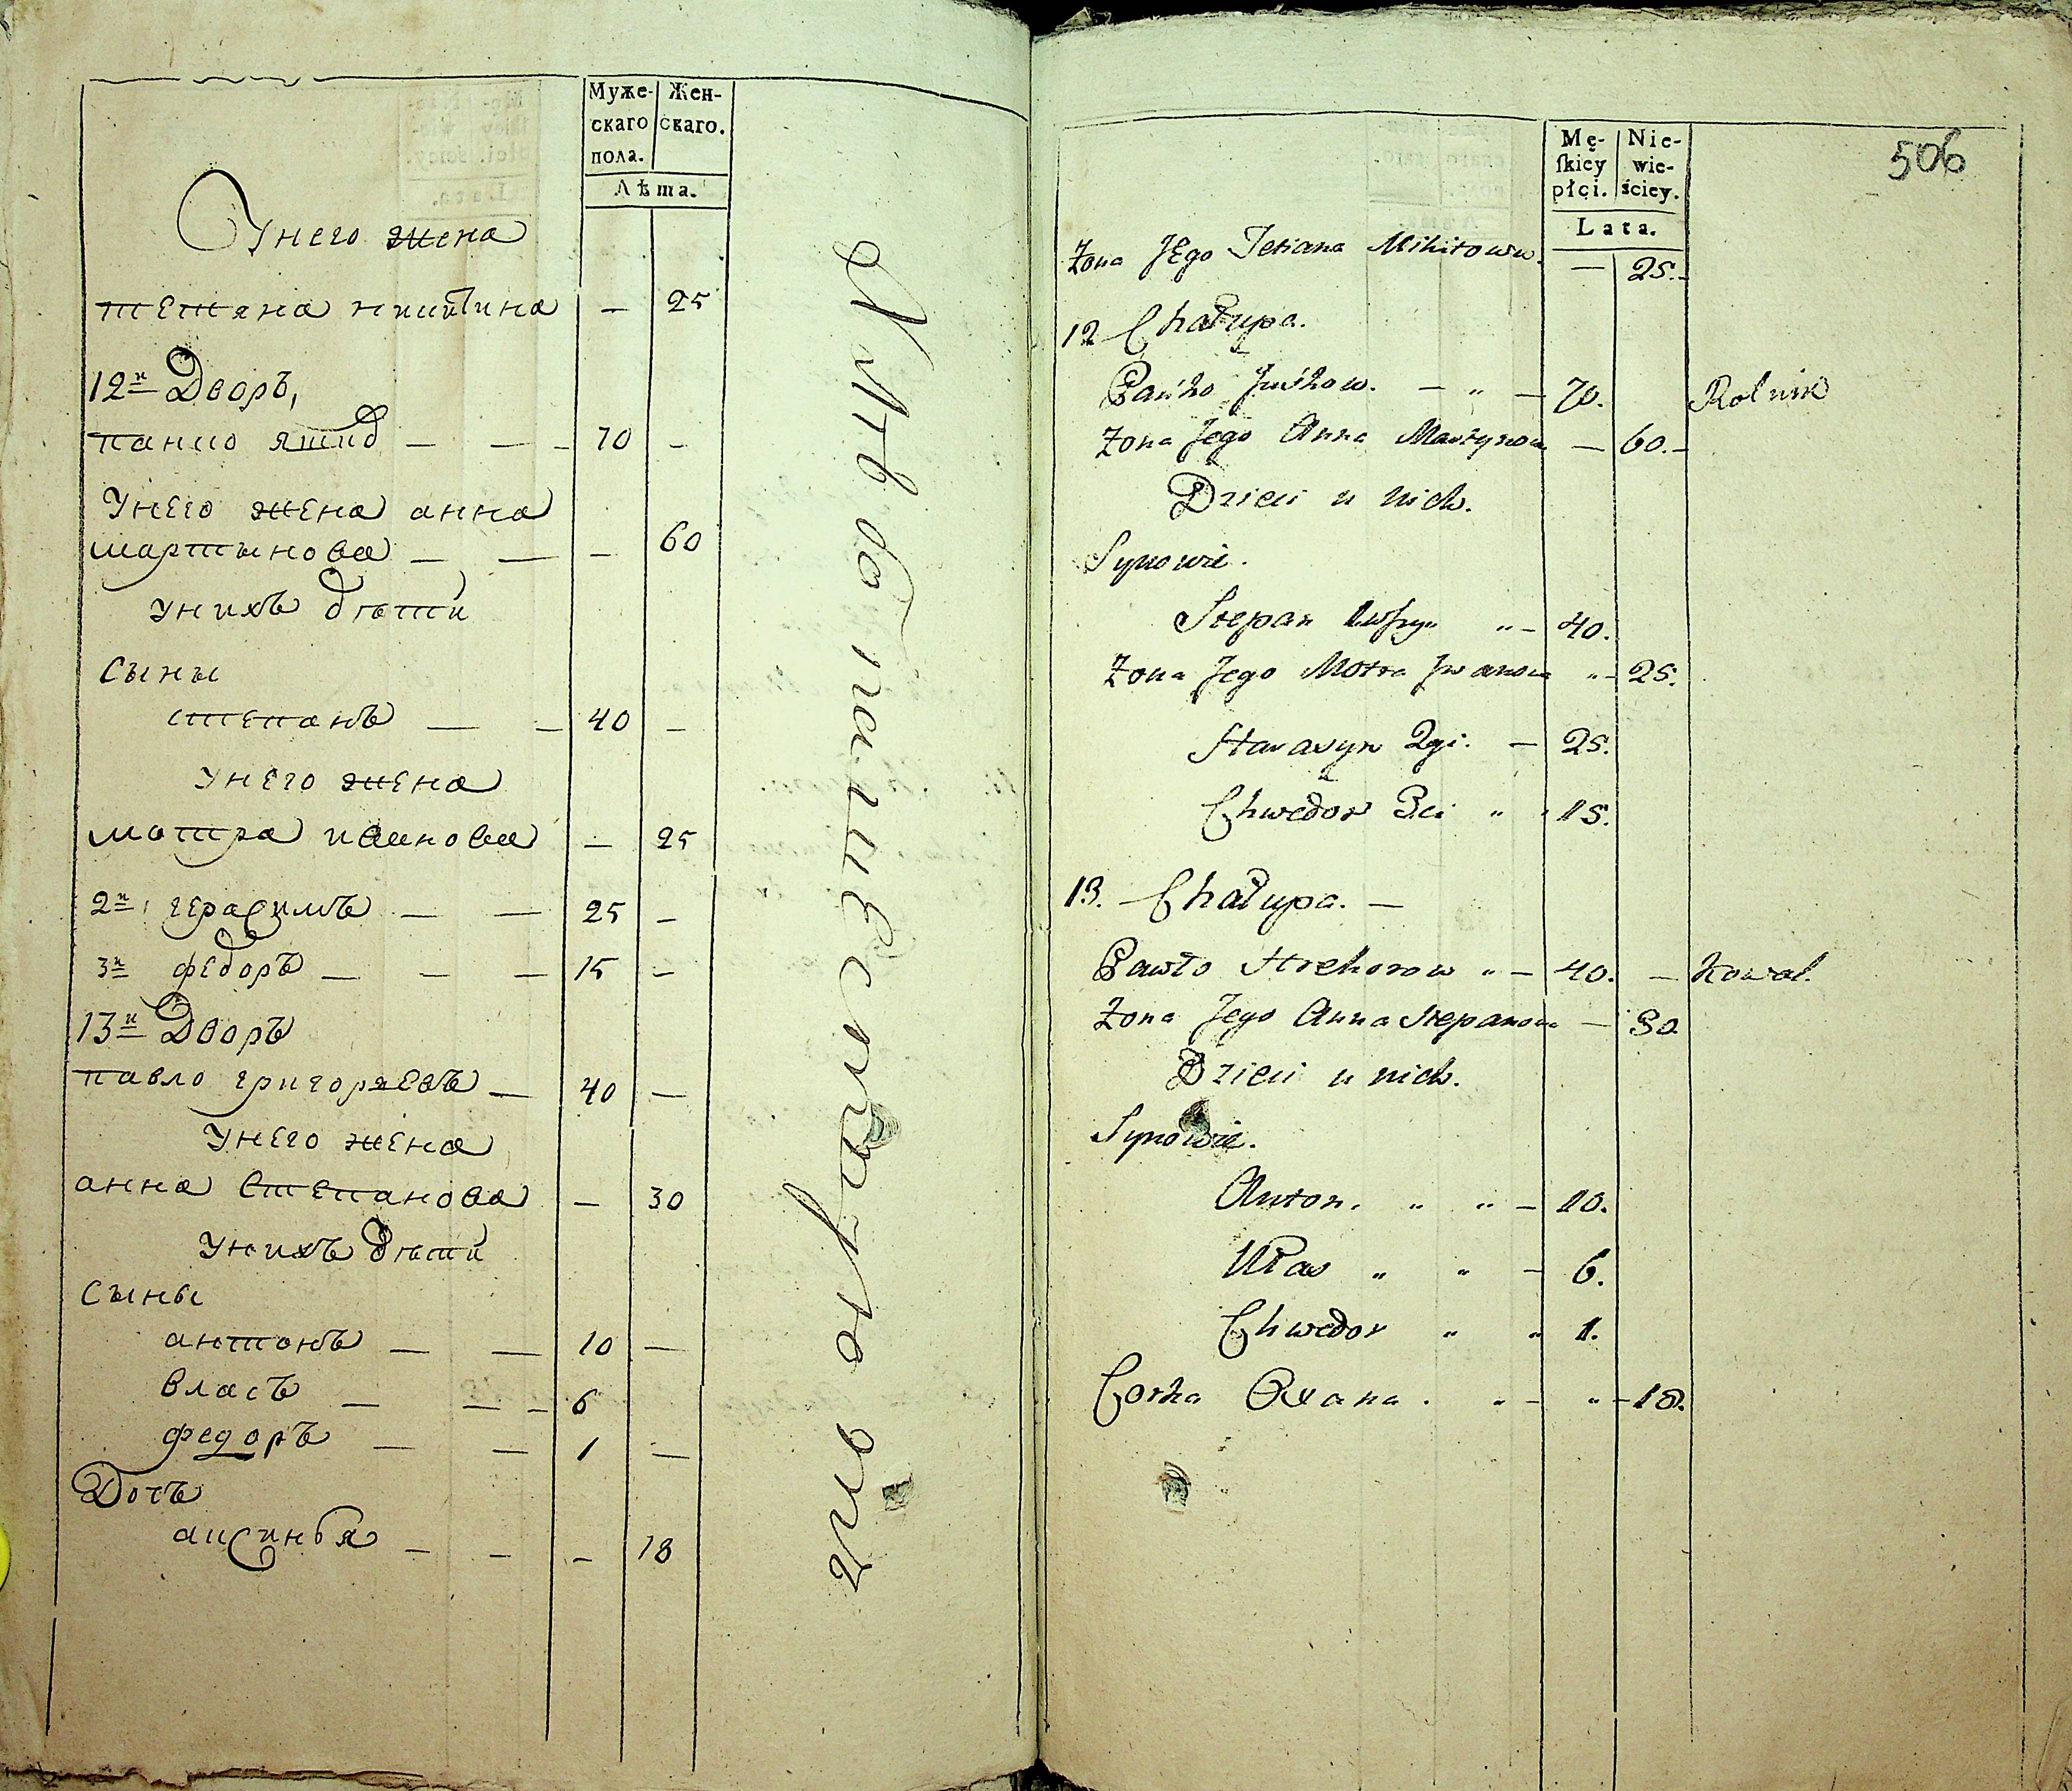 Муже- Жен-
скаго скаго.
пола.
Лѣта.
Унего жена
тетяна никитина — 25
12й Дворъ,
панко — — — 70 —
Унего жена анна
мартынова — — — 60
Унихъ дѣти
Сыны
степанъ — — 40 —
Унего жена
мотра иванова — 25
2й герасимъ — — 25 —
3й федоръ — — — 15 —
13й Дворъ
павло григорьевъ — 40 —
Унего жена
анна степанова — 30
Унихъ дѣти
Сыны
антонъ — — 10 —
власъ — — — 6
федоръ — — 1 —
Дочъ
аксинья — — — 18
Mę- Nie-
skiey wie-
płci. ściey.
Lata.
506
Żona Jego Tetiana Mikitowa. — 25.
12 Chałupa.
Pańko Juśkow. — „ — 70. Rolnik
Żona Jego Anna Martynowa — 60.
Dzieci u nich.
Synowie.
Stepan 1wszy „ — 40.
Żona Jego Motra Iwanowa „ — 25.
Harasym 2gi. — 25.
Chwedor 3ci „ 15.
13. Chałupa. —
Pawło Hrehorow „ — 40. — Kowal.
Żona Jego Anna Stepanowa — 30
Dzieci u nich.
Synowie.
Anton. „ „ — 10.
Ułas „ „ — 6.
Chwedor „ „ 1.
Corka Oxana. „ — „ — 18.